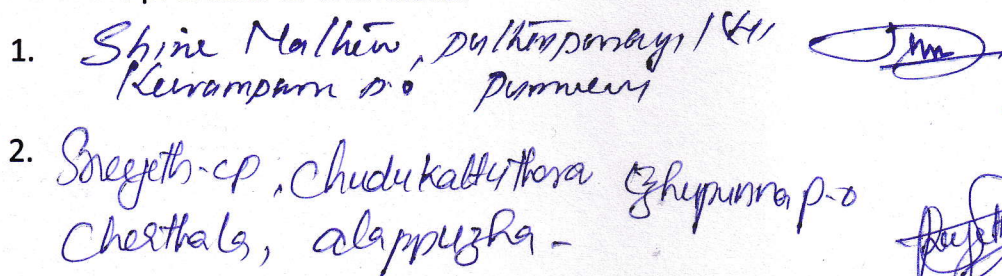 1. Shine Mathew, Puthenparayil (H)
P.O
2. Sreejeth-CP, Chudukattuthara Ezhupunna P-O
Cherthala, alappuzha-